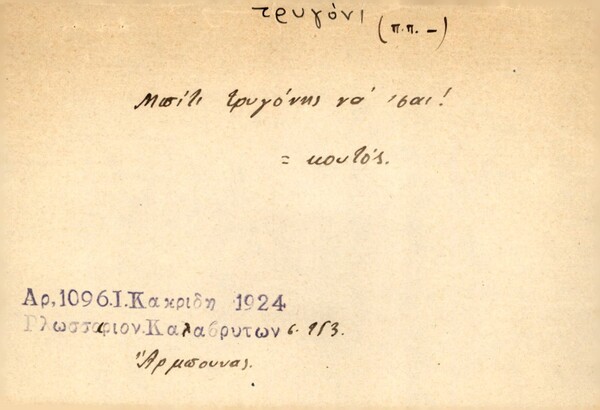 τρυγόνι (π.π. –)
Μπίτι τρυγόνης νά 'σαι!
= κουτός.
Αρ,1096.Ι.Κακριδη 1924
Γλωσσάριον.Καλαβρυτων σ. 153.
Ἄρμπουνας.